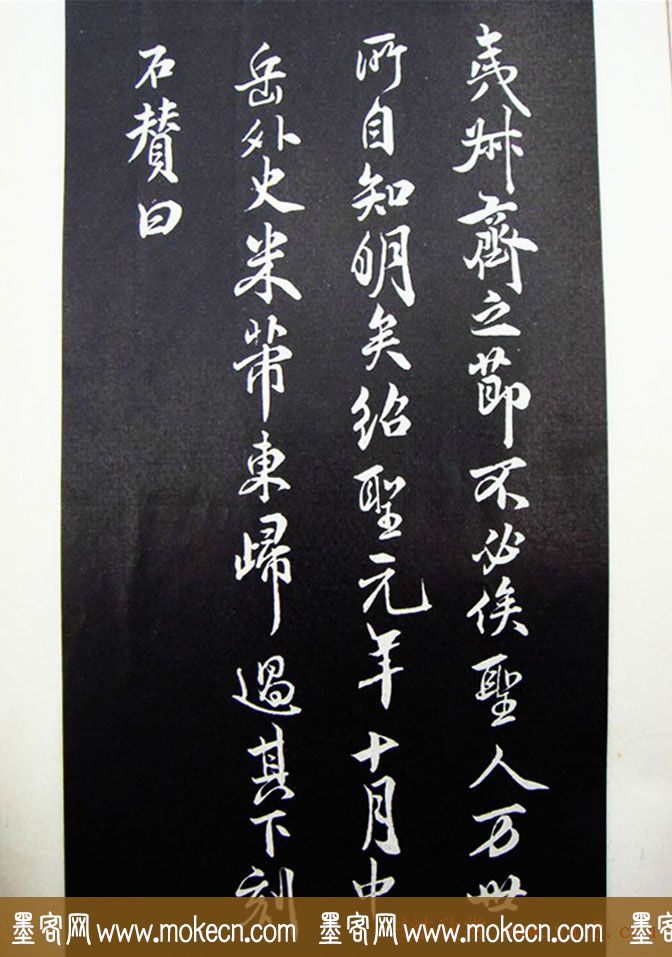 夷叔齊之節不必俟聖人万世
所自知明矣紹聖元年十月中
岳外史米芾東歸過其下刻
石賛曰
墨客网 www.mokecn.com 墨客网 www.mokecn.com 墨客网